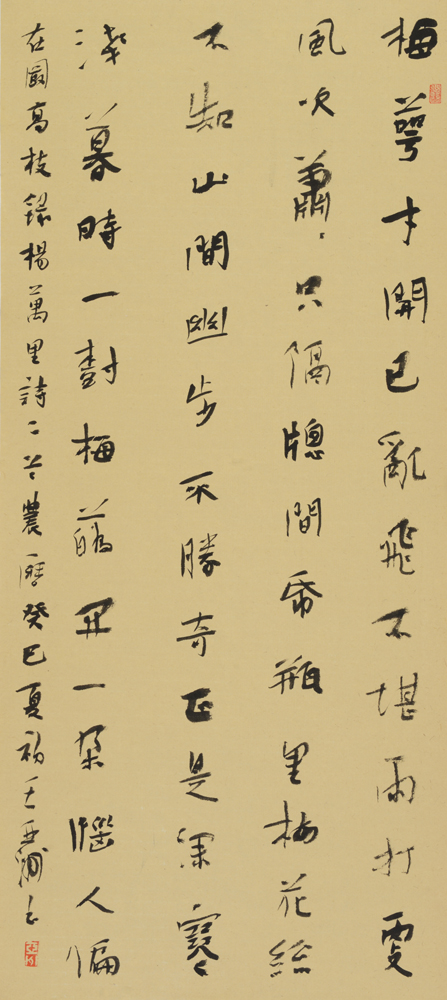 梅萼才開已亂飛不堪雨打更
風吹蕭〻只隔牕間帋瓶里梅花總
不知山間幽步不勝奇正是深寒
淺暮時一樹梅蘤开一朵惱人偏
在最高枝錄楊萬里詩二首農曆癸巳夏初王亞洲